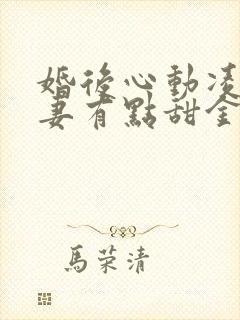 婚後心動凌
妻有點甜全
馬荣清